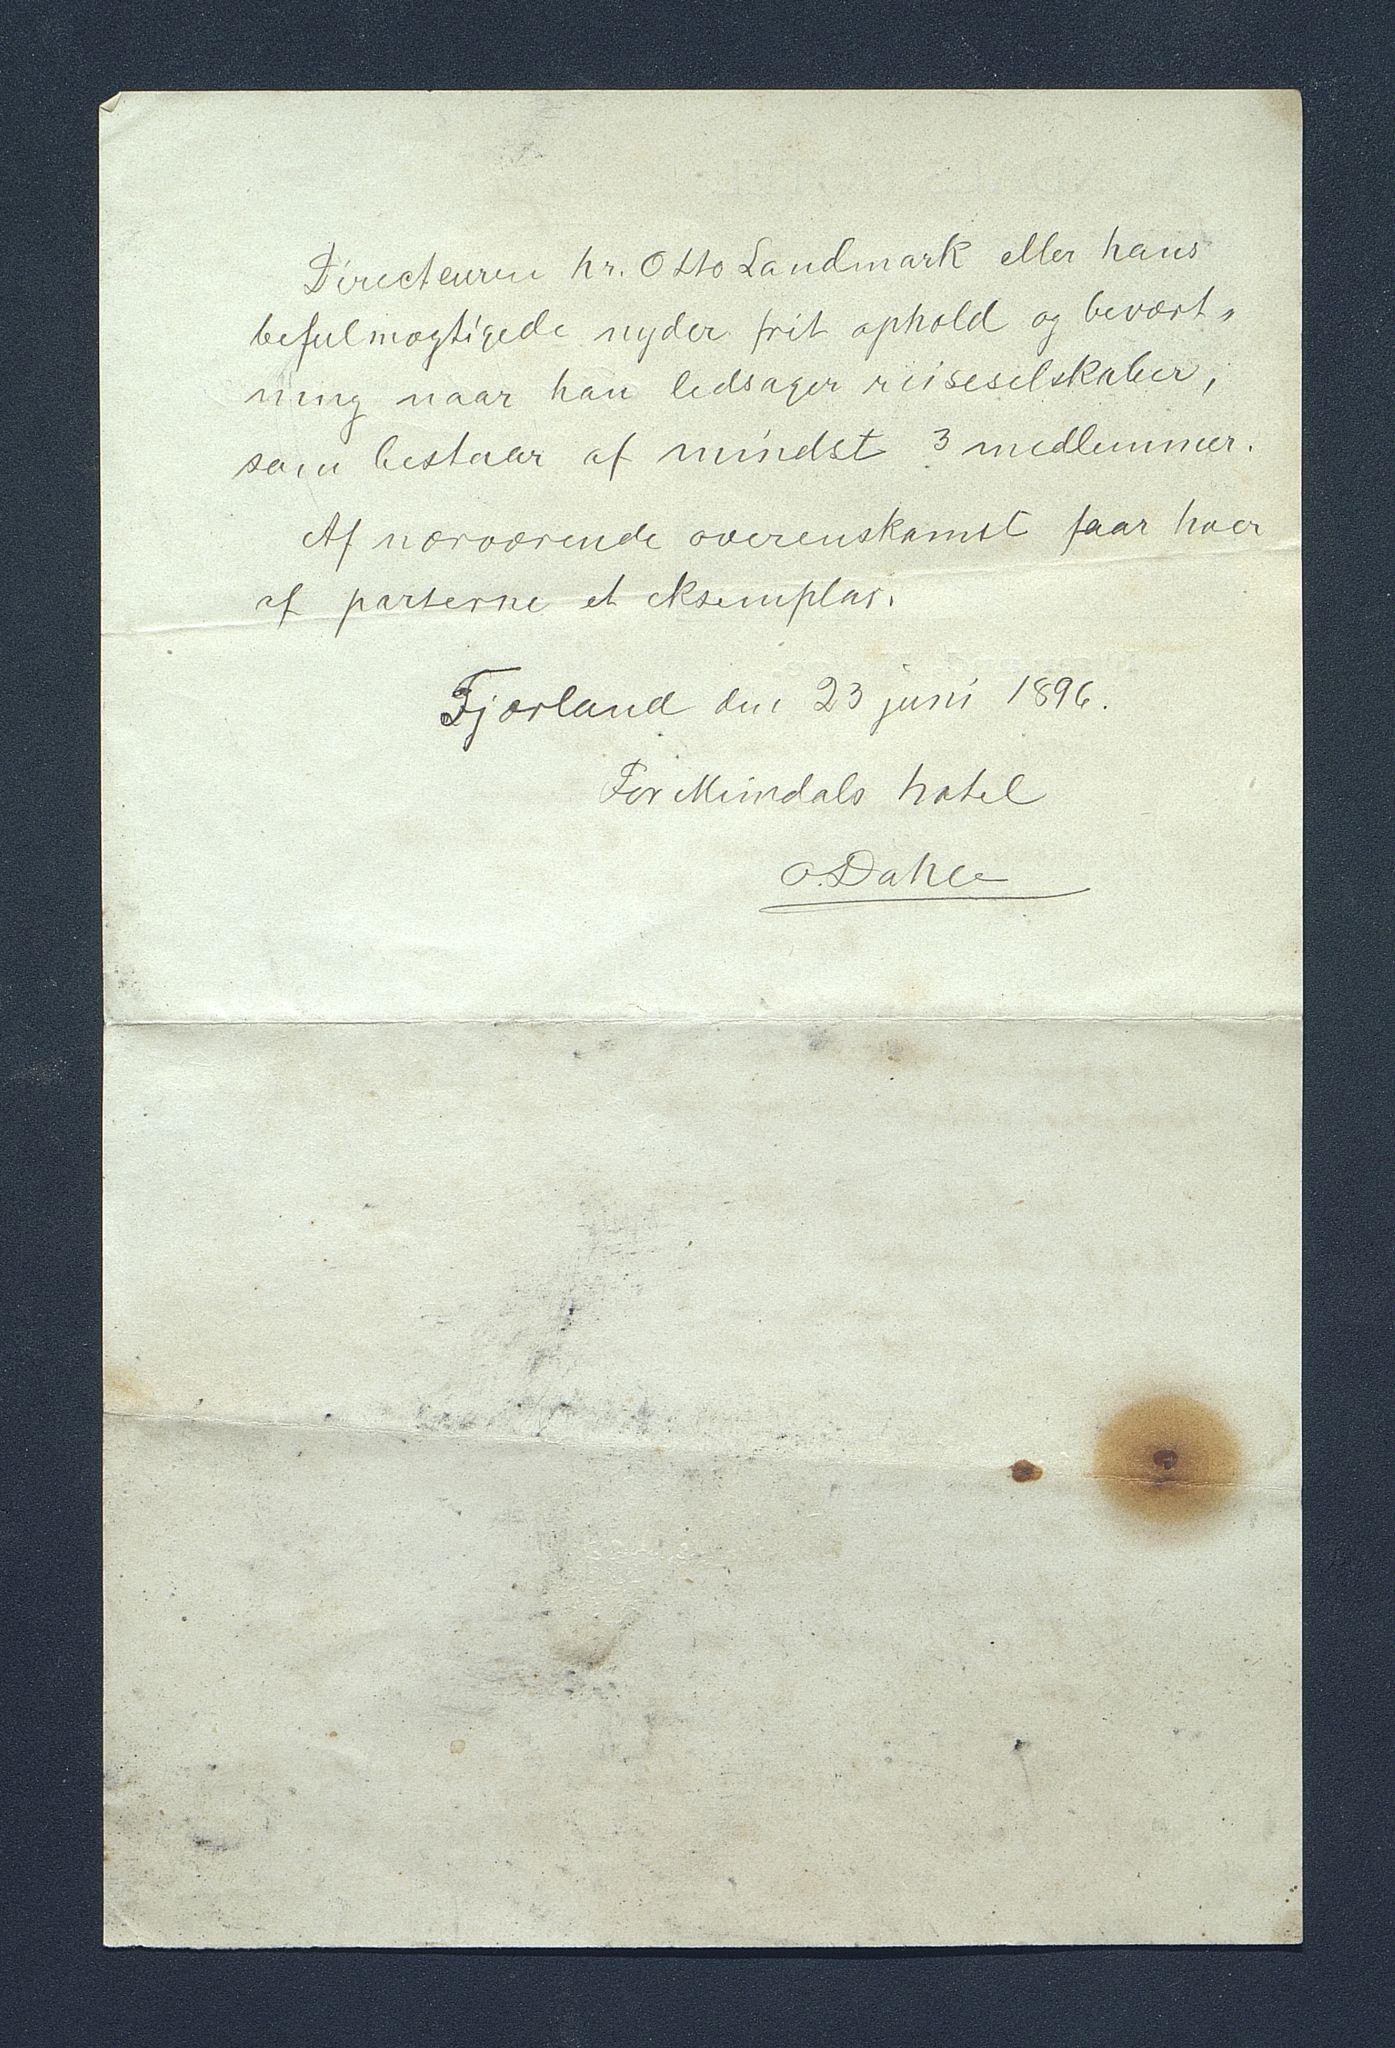 Directeuren hr. Otto Landmark eller hans
befulmægtigede nyder frit ophold og bevært-
ning naar han ledsager reiseselskaber,
som bestaar af mindst 3 medlemmer.
Af nærværende overenskomst faar hver
af parterne et eksemplar.
Fjærland den 23 juni 1896.
For Mundals hotel
O. Dahle